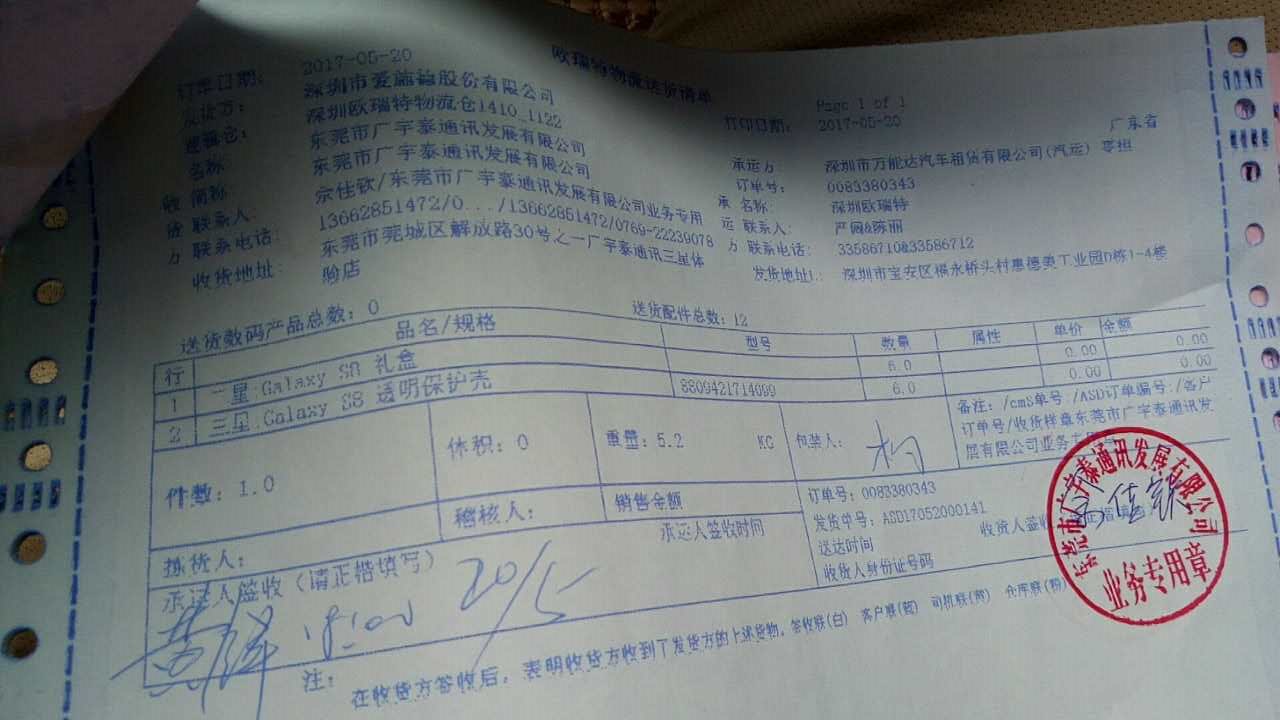 欧瑞特物流送货清单
订单日期: 2017-05-20
Page 1 of 1
发货方: 深圳市爱施德股份有限公司
打印日期: 2017-05-20
广东省
逻辑仓: 深圳欧瑞特物流仓1410_1122
名称 东莞市广宇泰通讯发展有限公司
承运方 深圳市万能达汽车租赁有限公司(汽运) 零担
收 简称 东莞市广宇泰通讯发展有限公司
订单号: 0083380343
货 联系人 佳钦/东莞市广宇泰通讯发展有限公司业务专用
承 名称: 深圳欧瑞特
方 联系电话: 13662851472/0.../13662851472/0769-22239078
运 联系人: 严阀&陈丽
收货地址: 东莞市莞城区解放路30号之一广宇泰通讯三星体
方 联系电话: 33586710&33586712
验店
发货地址: 深圳市宝安区福永桥头村惠德美工业园D栋1-4楼
送货数码产品总数: 0
送货配件总数: 12
行 品名/规格 型号 数量 属性 单价 金额
1 三星:Galaxy S8 礼盒 6.0 0.00 0.00
2 三星:Galaxy S8 透明保护壳 8809421714099 6.0 0.00 0.00
件数: 1.0 体积: 0 重量: 5.2 KG 包装人:
备注: /cmS单号:/ASD订单编号:/客户
订单号/收货样章东莞市广宇泰通讯发
展有限公司业务专用
拣货人: 稽核人: 销售金额
订单号: 0083380343
发货单号: ASD17052000141
送达时间
收货人身份证号码
收货人签收
承运人签收(请正楷填写)
承运人签收时间
20/5
东莞市广宇泰通讯发展有限公司
业务专用章
注: 在收货方签收后, 表明收货方收到了发货方的上述货物, 签收联(白) 客户联(蓝) 司机联(黄) 仓库联(粉)